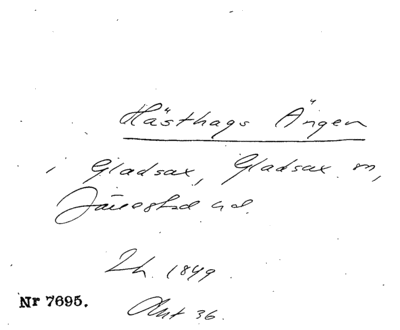 Hästhags Ängen
i Gladsax, Gladsax sn,
Järrestad hd.
Lh. 1849.
Akt 36.
Nr 7695.